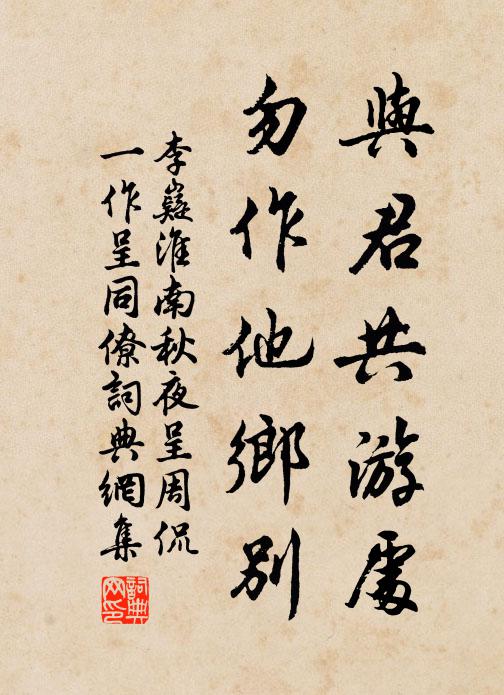 與君共游處
勿作他鄉別
李嶷淮南秋夜呈周侃
一作呈同僚詞典網集
詞典網印